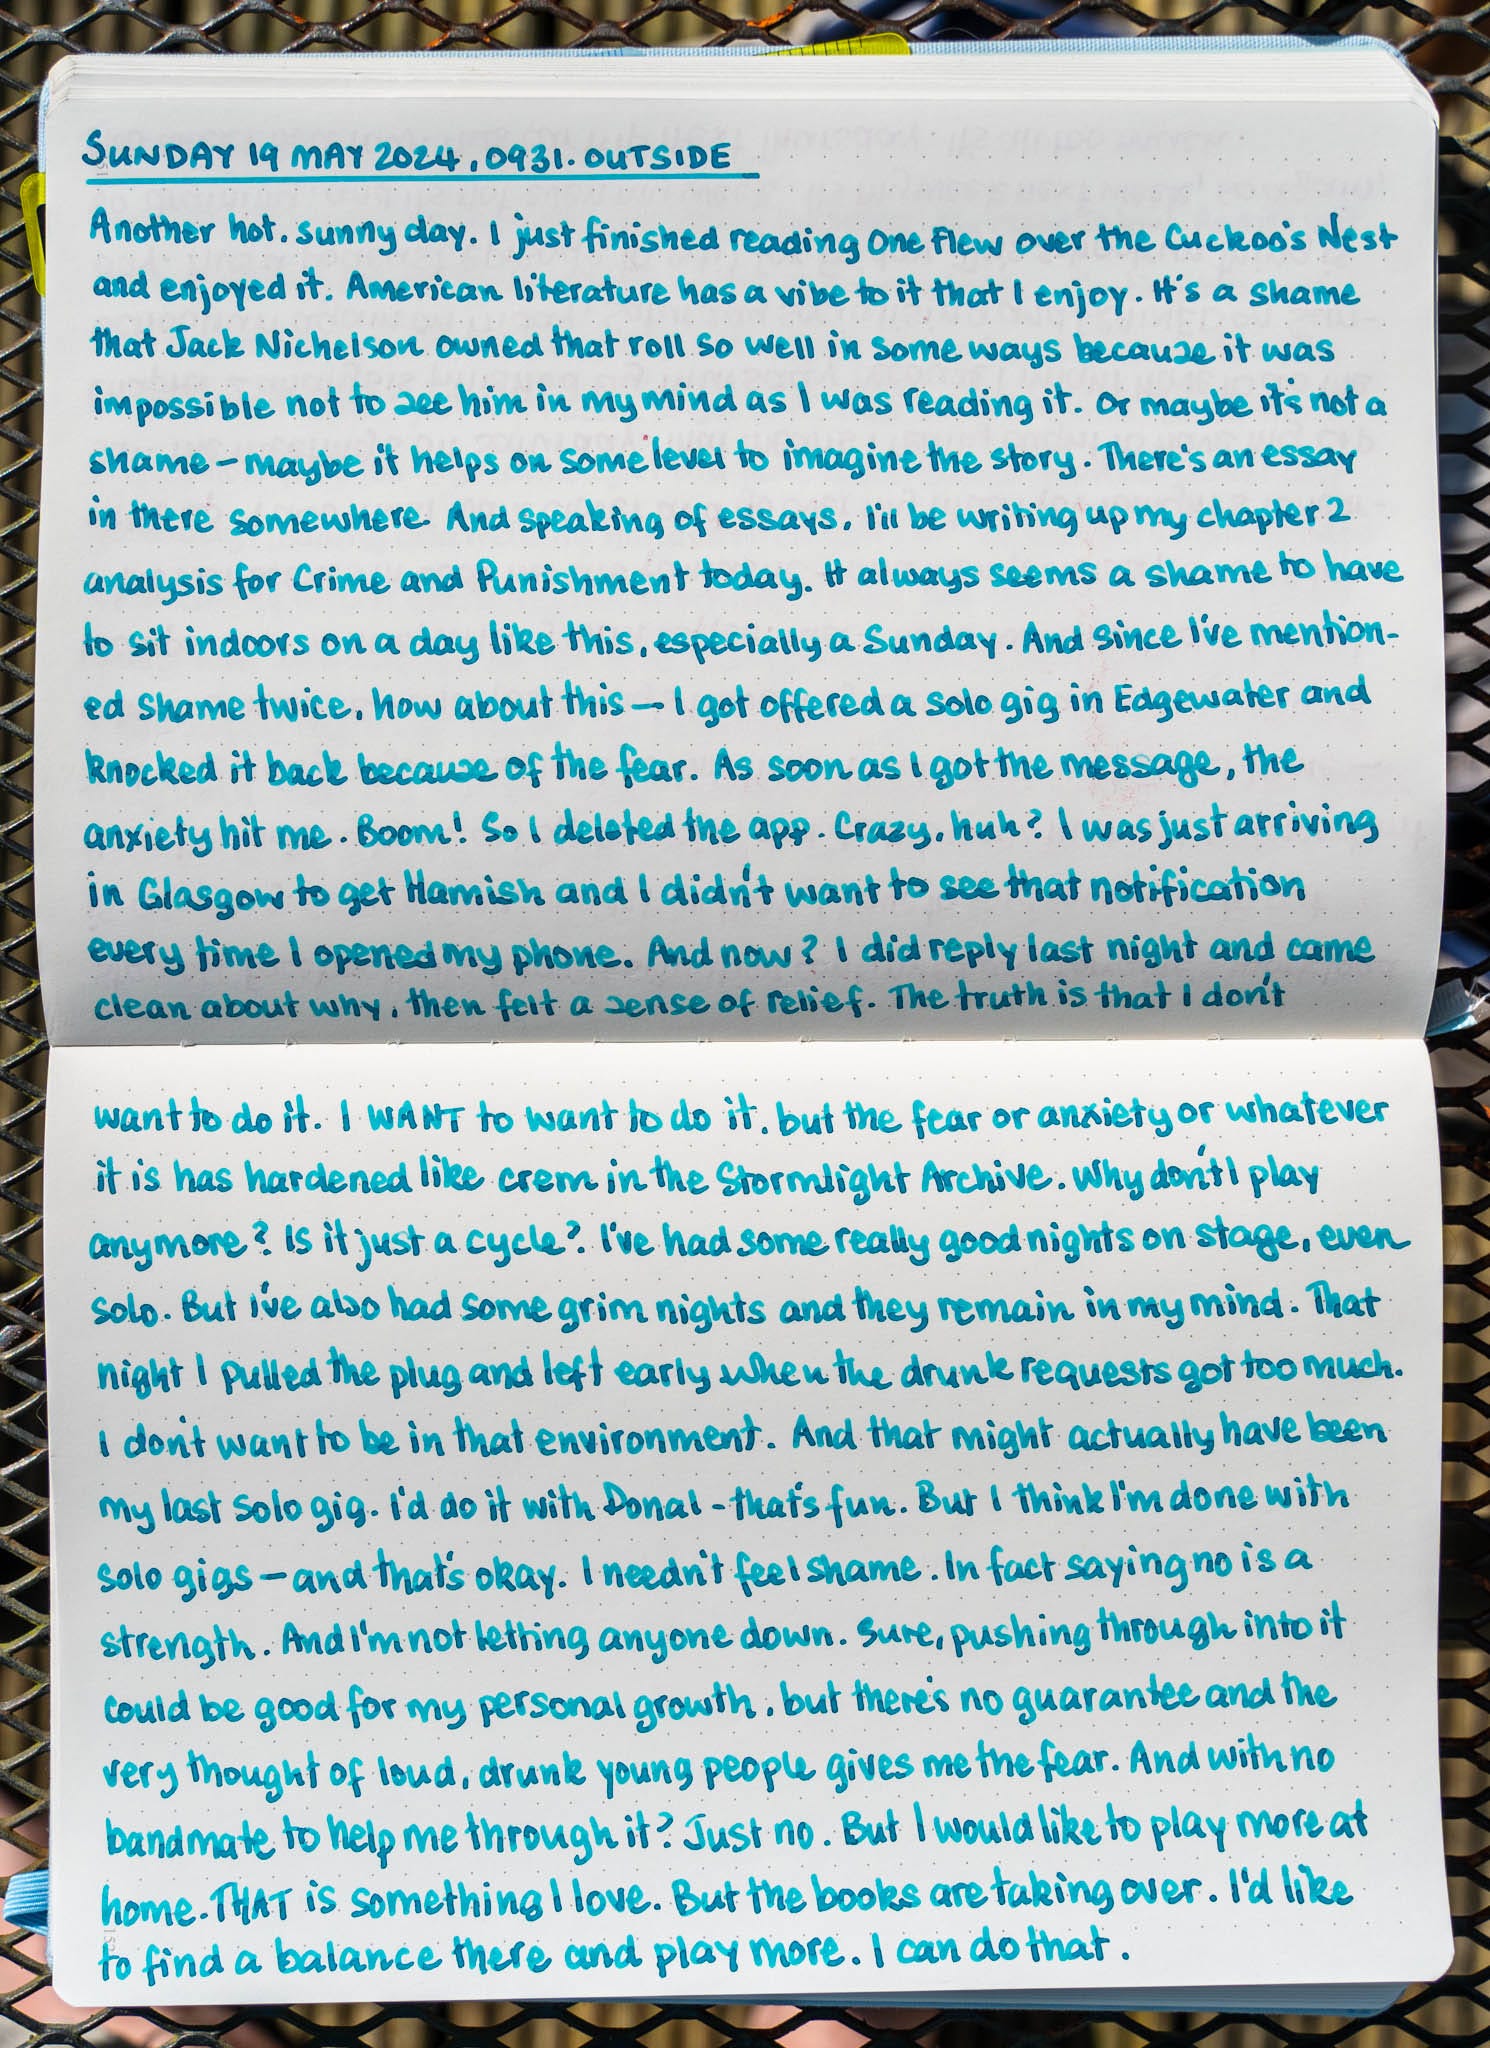 SUNDAY 19 MAY 2024, 0931. OUTSIDE
Another hot, sunny day. I just finished reading One Flew over the Cuckoo's Nest
and enjoyed it. American literature has a vibe to it that I enjoy. It's a shame
that Jack Nichelson owned that roll so well in some ways because it was
impossible not to see him in my mind as I was reading it. Or maybe it's not a
shame — maybe it helps on some level to imagine the story. There's an essay
in there somewhere. And speaking of essays, I'll be writing up my chapter 2
analysis for Crime and Punishment today. It always seems a shame to have
to sit indoors on a day like this, especially a Sunday. And since I've mention-
ed shame twice, how about this — I got offered a solo gig in Edgewater and
knocked it back because of the fear. As soon as I got the message, the
anxiety hit me. Boom! So I deleted the app. Crazy, huh? I was just arriving
in Glasgow to get Hamish and I didn't want to see that notification
every time I opened my phone. And now? I did reply last night and came
clean about why, then felt a sense of relief. The truth is that I don't
want to do it. I WANT to want to do it, but the fear or anxiety or whatever
it is has hardened like crem in the Stormlight Archive. Why don't I play
anymore? Is it just a cycle? I've had some really good nights on stage, even
solo. But I've also had some grim nights and they remain in my mind. That
night I pulled the plug and left early when the drunk requests got too much.
I don't want to be in that environment. And that might actually have been
my last solo gig. I'd do it with Donal - that's fun. But I think I'm done with
solo gigs — and that's okay. I needn't feel shame. In fact saying no is a
strength. And I'm not letting anyone down. Sure, pushing through into it
could be good for my personal growth, but there's no guarantee and the
very thought of loud, drunk young people gives me the fear. And with no
bandmate to help me through it? Just no. But I would like to play more at
home. THAT is something I love. But the books are taking over. I'd like
to find a balance there and play more. I can do that.